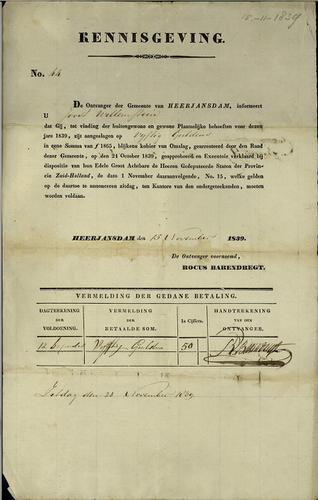 5-11-1839
KENNISGEVING.
No. 44
De Ontvanger der Gemeente van HEERJANSDAM, informeert
U
dat Gij, tot vinding der buitengewone en gewone Plaatselijke behoeften voor dezen
jare 1839, zijt aangeslagen op Vijftig Guldens
in eene Somma van f 1865, blijkens kohier van Omslag, gearresteerd door den Raad
dezer Gemeente, op den 21 October 1839, geapprobeerd en Executoir verklaard bij
dispositie van hun Edele Groot Achtbare de Heeren Gedeputeerde Staten der Provin-
cie Zuid-Holland, de dato 1 November daaraanvolgende, No. 15, welke gelden
op de daartoe te annonceren zitdag, ten Kantore van den ondergeteekenden, moeten
worden voldaan.
HEERJANSDAM den 15 November 1839.
De Ontvanger voornoemd,
ROCUS BARENDREGT.
VERMELDING DER GEDANE BETALING.
DAGTEEKENING DER VOLDOENING.
VERMELDING DER BETAALDE SOM.
In Cijffers.
HANDTEEKENING VAN DEN ONTVANGER.
12 Vijftig Gulden 50 RBarendregt
Zitdag den 23 November 1839